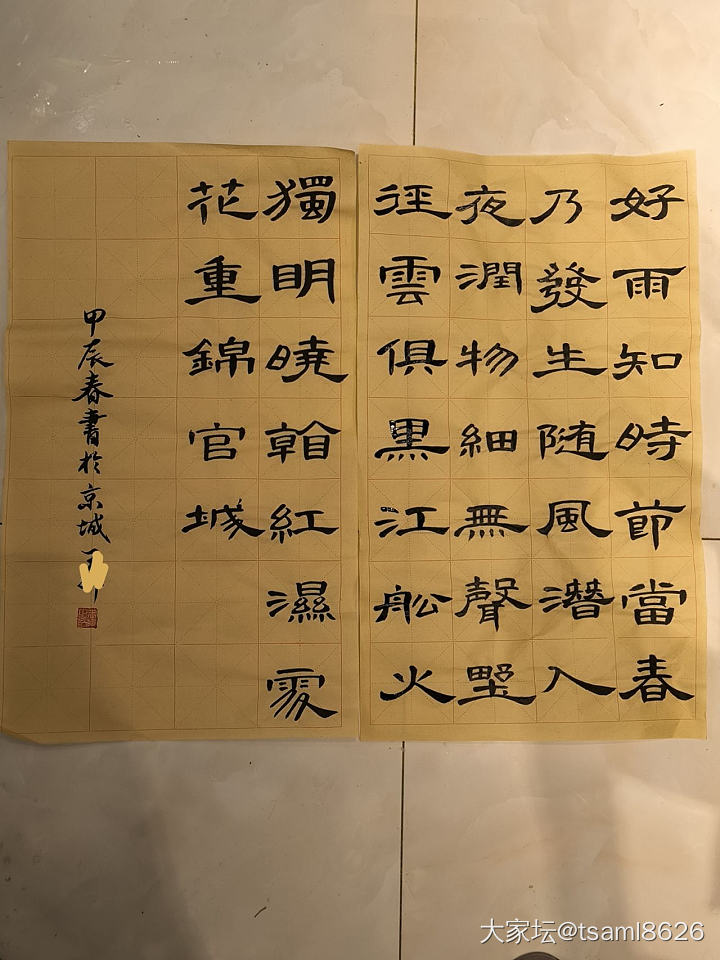 好雨知時節當春
乃發生随風潛入
夜潤物細無聲野
徑雲俱黒江舩火
獨明曉看紅濕處
花重錦官城
甲辰春書於京城
大家坛@tsaml8626